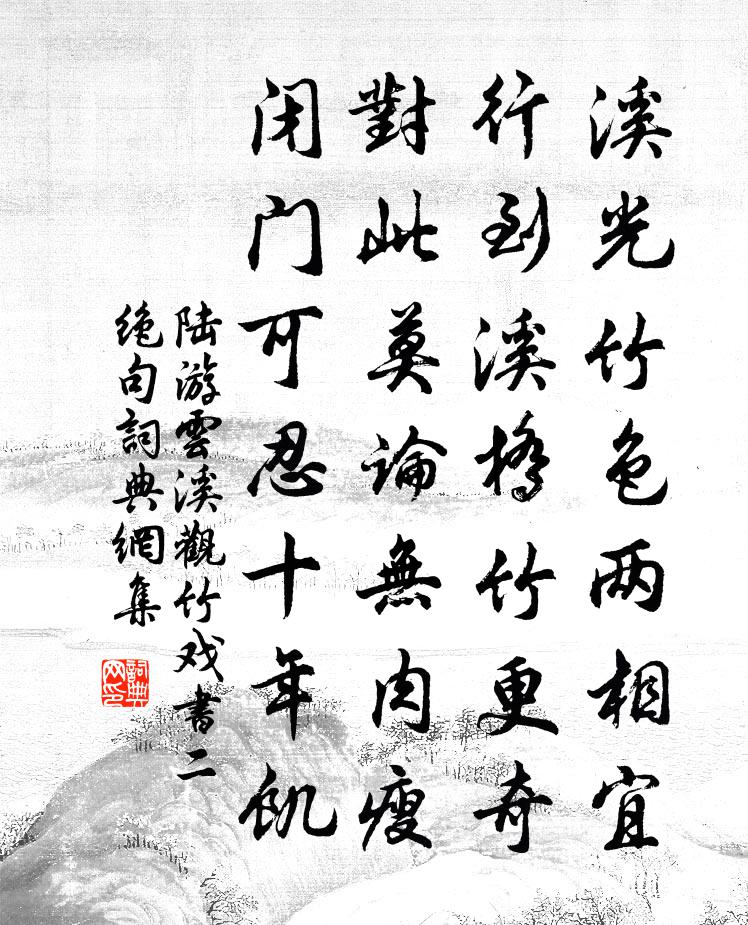 溪光竹色两相宜
行到溪橋竹更奇
對此莫論無肉瘦
闭门可忍十年飢
陆游雲溪觀竹戏書二
绝句詞典網集
詞典网印